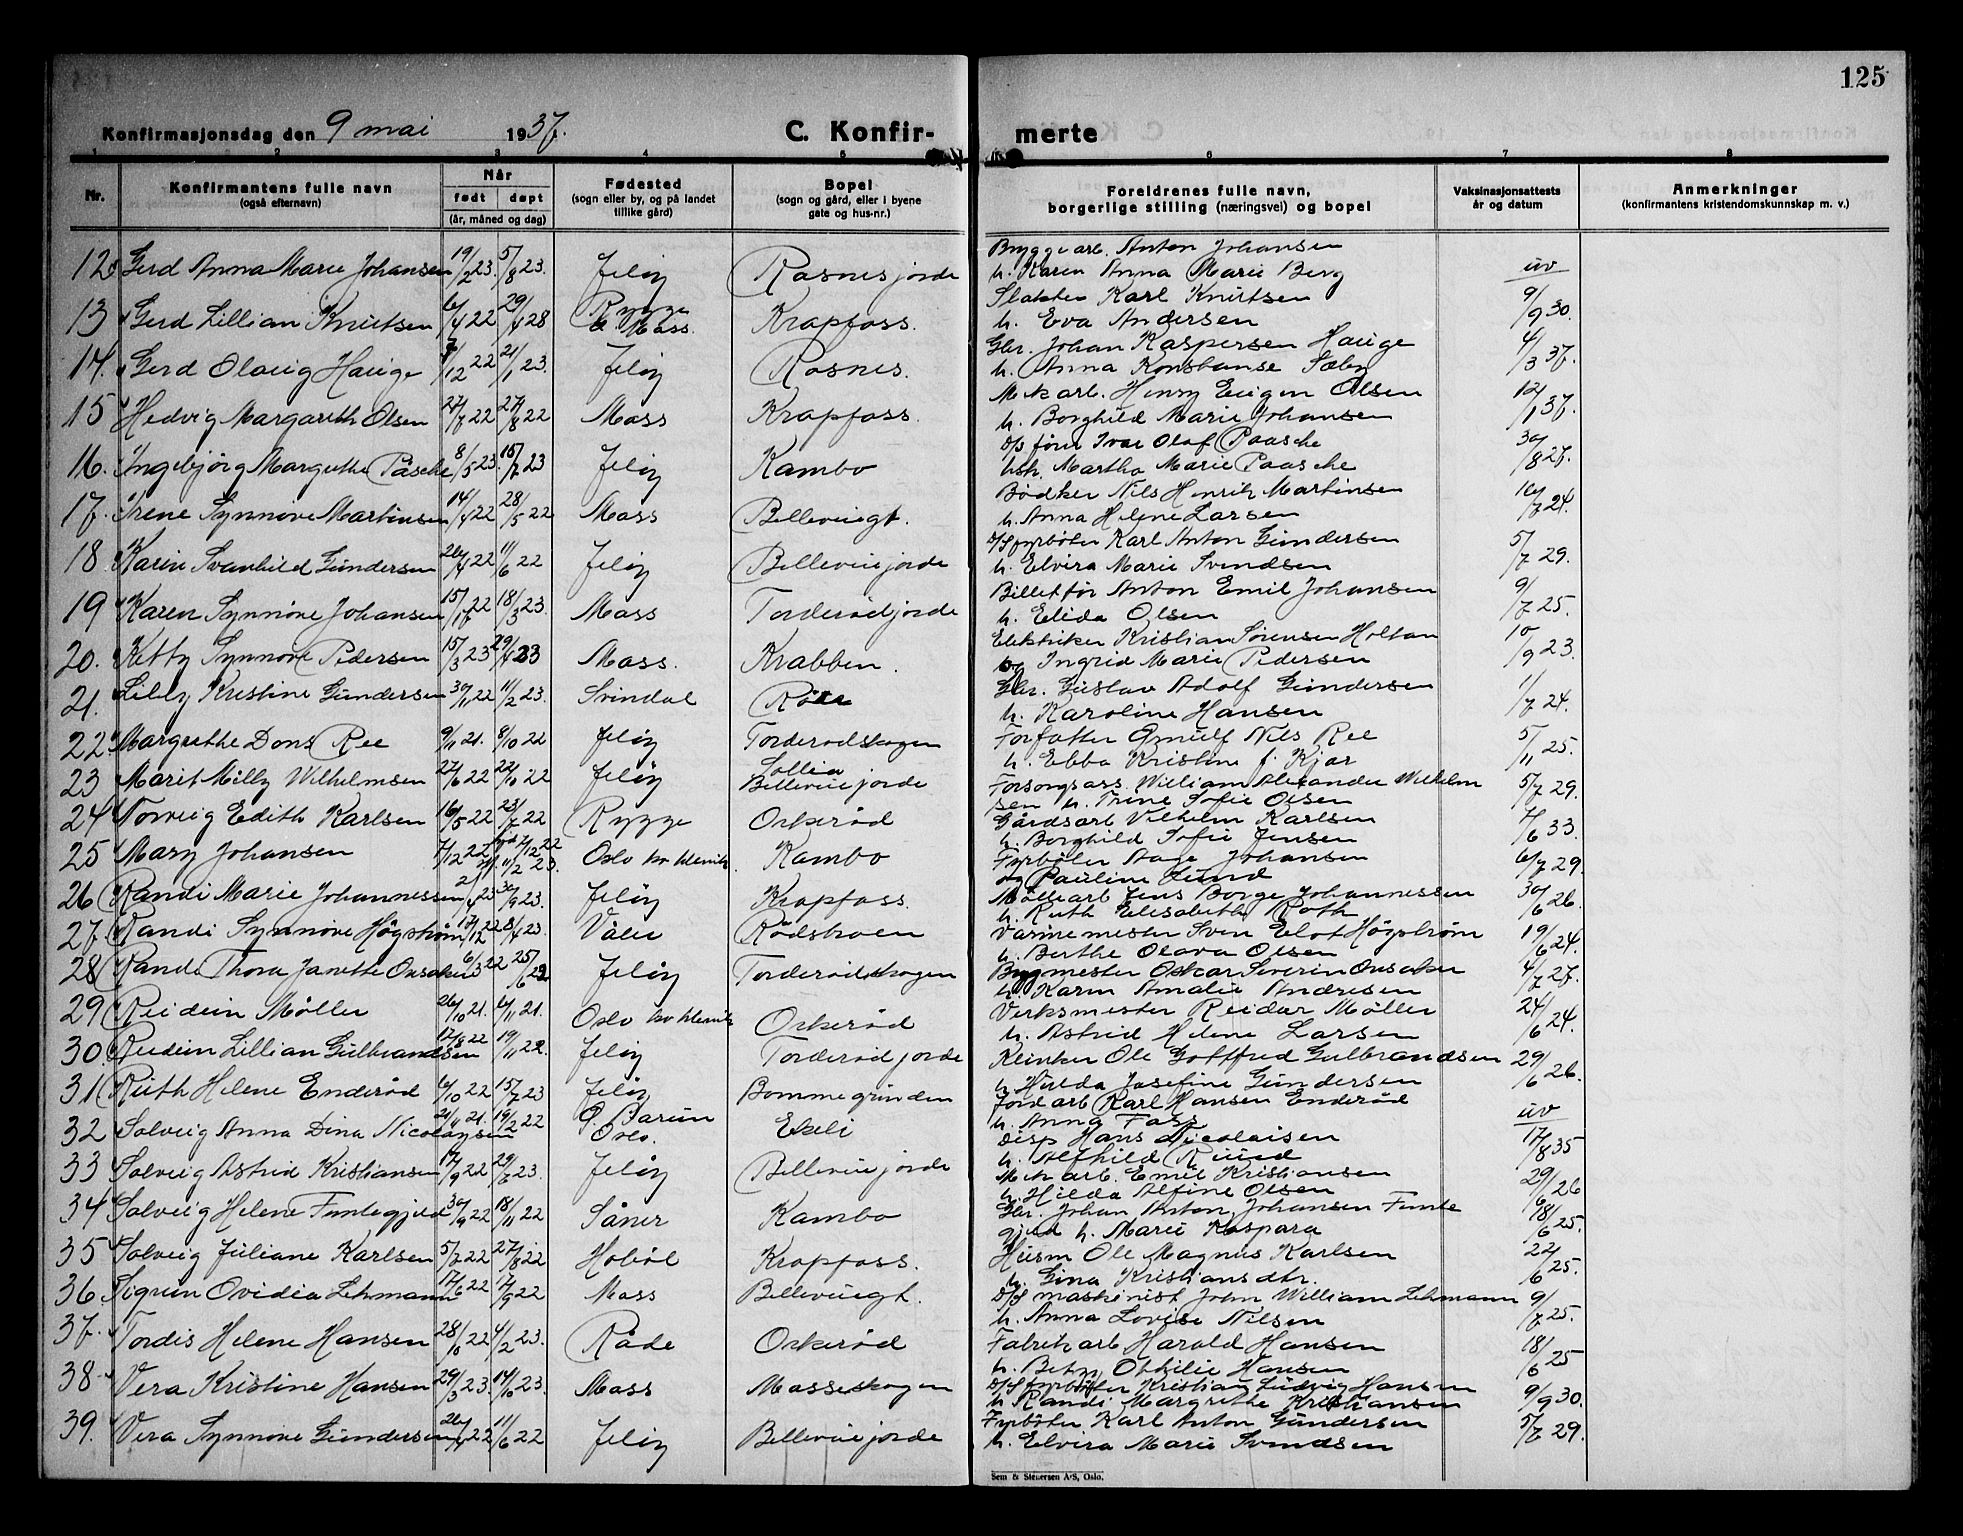 125
Konfirmasjonsdag den 9 mai 1937.
C. Konfir-
merte
1 2 3 4 5 6 7 8
Nr.
Konfirmantens fulle navn
(også efternavn)
Når
født døpt
(år, måned og dag)
Fødested
(sogn eller by, og på landet
tillike gård)
Bopel
(sogn og gård, eller i byene
gate og hus-nr.)
Foreldrenes fulle navn,
borgerlige stilling (næringsvei) og bopel
Vaksinasjonsattests
år og datum
Anmerkninger
(konfirmantens kristendomskunnskap m. v.)
12 Gerd Anna Marie Johansen 19/2 23. 5/8 23. Jeløy Rosnesjorde Bryggearb. Anton Johansen
h. Karen Anna Marie Berg uv
13 Gerd Lillian Knutsen 6/4 22 29/4 28 Rygge Moss. Krapfoss. Slakter Karl Knutsen 9/9 30.
h. Eva Andersen
14. Gerd Olaug Hauge /12 22 21/1 23. Jeløy Rosnes. Gbr. Johan Kaspersen Hauge 4/3 37.
h. Anna Konstanse Sæby
15 Hedvig Margareth Olsen 22 27/8 22 Moss Krapfoss. Mek arb. Henry Eugen Olsen 12/1 37.
h. Borghild Marie Johansen
16. Ingebjørg Margrethe Paasche 8/5 23. 15/7 23 Jeløy Kambo D/s fører Ivar Olaf Paasche 30/8 27.
Martha Marie Paasche
17. Irene Synnøve Martinsen 14/4 22 28/5 22 Moss Bellevuegt. Bødker Nils Henrik Martinsen 16/7 24.
h. Anna Helene Larsen
18 Karin Svanhild Gundersen 26/4 22 11/6 22 Jeløy Bellevuejorde D/S fyrbøter Karl Anton Gundersen 5/7 29.
h. Elvira Marie Svendsen
19 Karen Synnøve Johansen 22 18/3 23. Moss Torderødjorde Billetfør Anton Emil Johansen 9/7 25.
h. Elida Olsen
20. Kitty Synnøve Pedersen 15/3 23 29/4 23 Moss. Krabben. Elektriker Kristian Sørensen Holtan 10/9 23.
og Ingrid Marie Pedersen
21. Lilly Kristine Gundersen 30/11 22 11/2 23. Svindal Gbr. Gustav Adolf Gundersen 1/7 24.
h. Karoline Hansen
22. Margrethe Dons Ree 9/11 21. 8/10 22 Jeløy Torderødskogen Forfatter Nils Ree 5/11 25.
h. Ebba Kristine f. Kjær
23 Marit Milly Wilhelmsen 27/6 22 22/10 22 Jeløy Sollia Bellevuejorde Forsorgsass. William Alexander Wilhelm 5/7 29.
sen h. Trine Sofie Olsen
24 Torveig Edith Karlsen 16/5 22 23/7 22 Rygge Orkerød Gårdsarb Vilhelm Karlsen 7/6 33.
h. Borghild Sofie Jensen
25 Mary Johansen 7/12 22 11/2 23. Oslo kv klinik. Kambo Fyrbøter Aage Johansen 6/7 29.
og Pauline Lund
26 Randi Marie Johannessen 23 30/9 23. Jeløy Krapfoss. Møllearb Jens Borge Johannessen 30/6 26.
h. Ruth Elisabeth Roth
27. Randi Synnøve Høgstrøm 17/12 22 8/4 23. Våler Rødsbroen Varmemester Sven Elof Høgstrøm 19/6 24.
h. Berthe Olava Olsen
28 Randi Thora Janette Onsaker 6/3 22 25/6 22 Jeløy Torderødskogen Bygmester Oskar Severin Onsaker 4/7 27.
h. Karen Amalie Andresen
29 Reidun Møller 26/10 21. 6/11 21. Oslo kv klinik Orkerød Verksmester Reidar Møller 24/6 24.
h. Astrid Helene Larsen
30. Reidun Lillian Gulbrandsen 17/8 22 19/11 22. Jeløy Torderødjorde Klinker Ole Gottfred Gulbrandsen 29/6 26.
h. Hilda Josefine Gundersen
31 Ruth Helene Enderød 6/10 22 15/7 23 Jeløy Bommegrunden Jordarb Karl Hansen Enderød uv
h. Anna Foss
32 Solveig Anna Dina Nicolaysen 21/11 21. 19/2 22 Ø. Bærum Oslo. Ekeli Disp Hans Nicolaisen 17/8 35
h. Alfhild Ruud
33 Solveig Astrid Kristiansen 17/9 22 29/ 23. Jeløy Bellevuejorde Mek arb. Emil Kristiansen 29/6 26
h. Hilda Alfine Olsen
34 Solveig Helene Funtegjeld 30/9 22 18/11 22 Såner Kambo Gbr. Johan Anton Johansen Funte 18/6 25.
gjeld h. Marie Kaspara
35 Solveig Juliane Karlsen 5/7 22 27/8 22 Hobøl Krapfoss. Husm Ole Magnus Karlsen 22/6 25.
h. Gina Kristiansdtr.
36. Sigrun Ovidia Lehmann 17/6 22 17/9 22 Moss Bellevuegt. D/S maskinist John William Lehmann 9/7 25.
h. Anna Lovise Nilsen
37. Tordis Helene Hansen 28/10 22 4/2 23. Råde Orkerød Fabrikarb Harald Hansen 18/6 25
h. Betzy Othilie Hansen
38. Vera Kristine Hansen 29/3 23. 14/10 23. Moss Mosseskogen D/S fyrbøter Kristian Ludvig Hansen 9/9 30.
h Randi Margrethe Kristiansen
39. Vera Synnøve Gundersen 26/4 22 11/6 22 Jeløy Bellevuejorde Fyrbøter Karl Anton Gundersen 5/7 29.
h. Elvira Marie Svendsen
Sem & Stenersen A/S, Oslo.